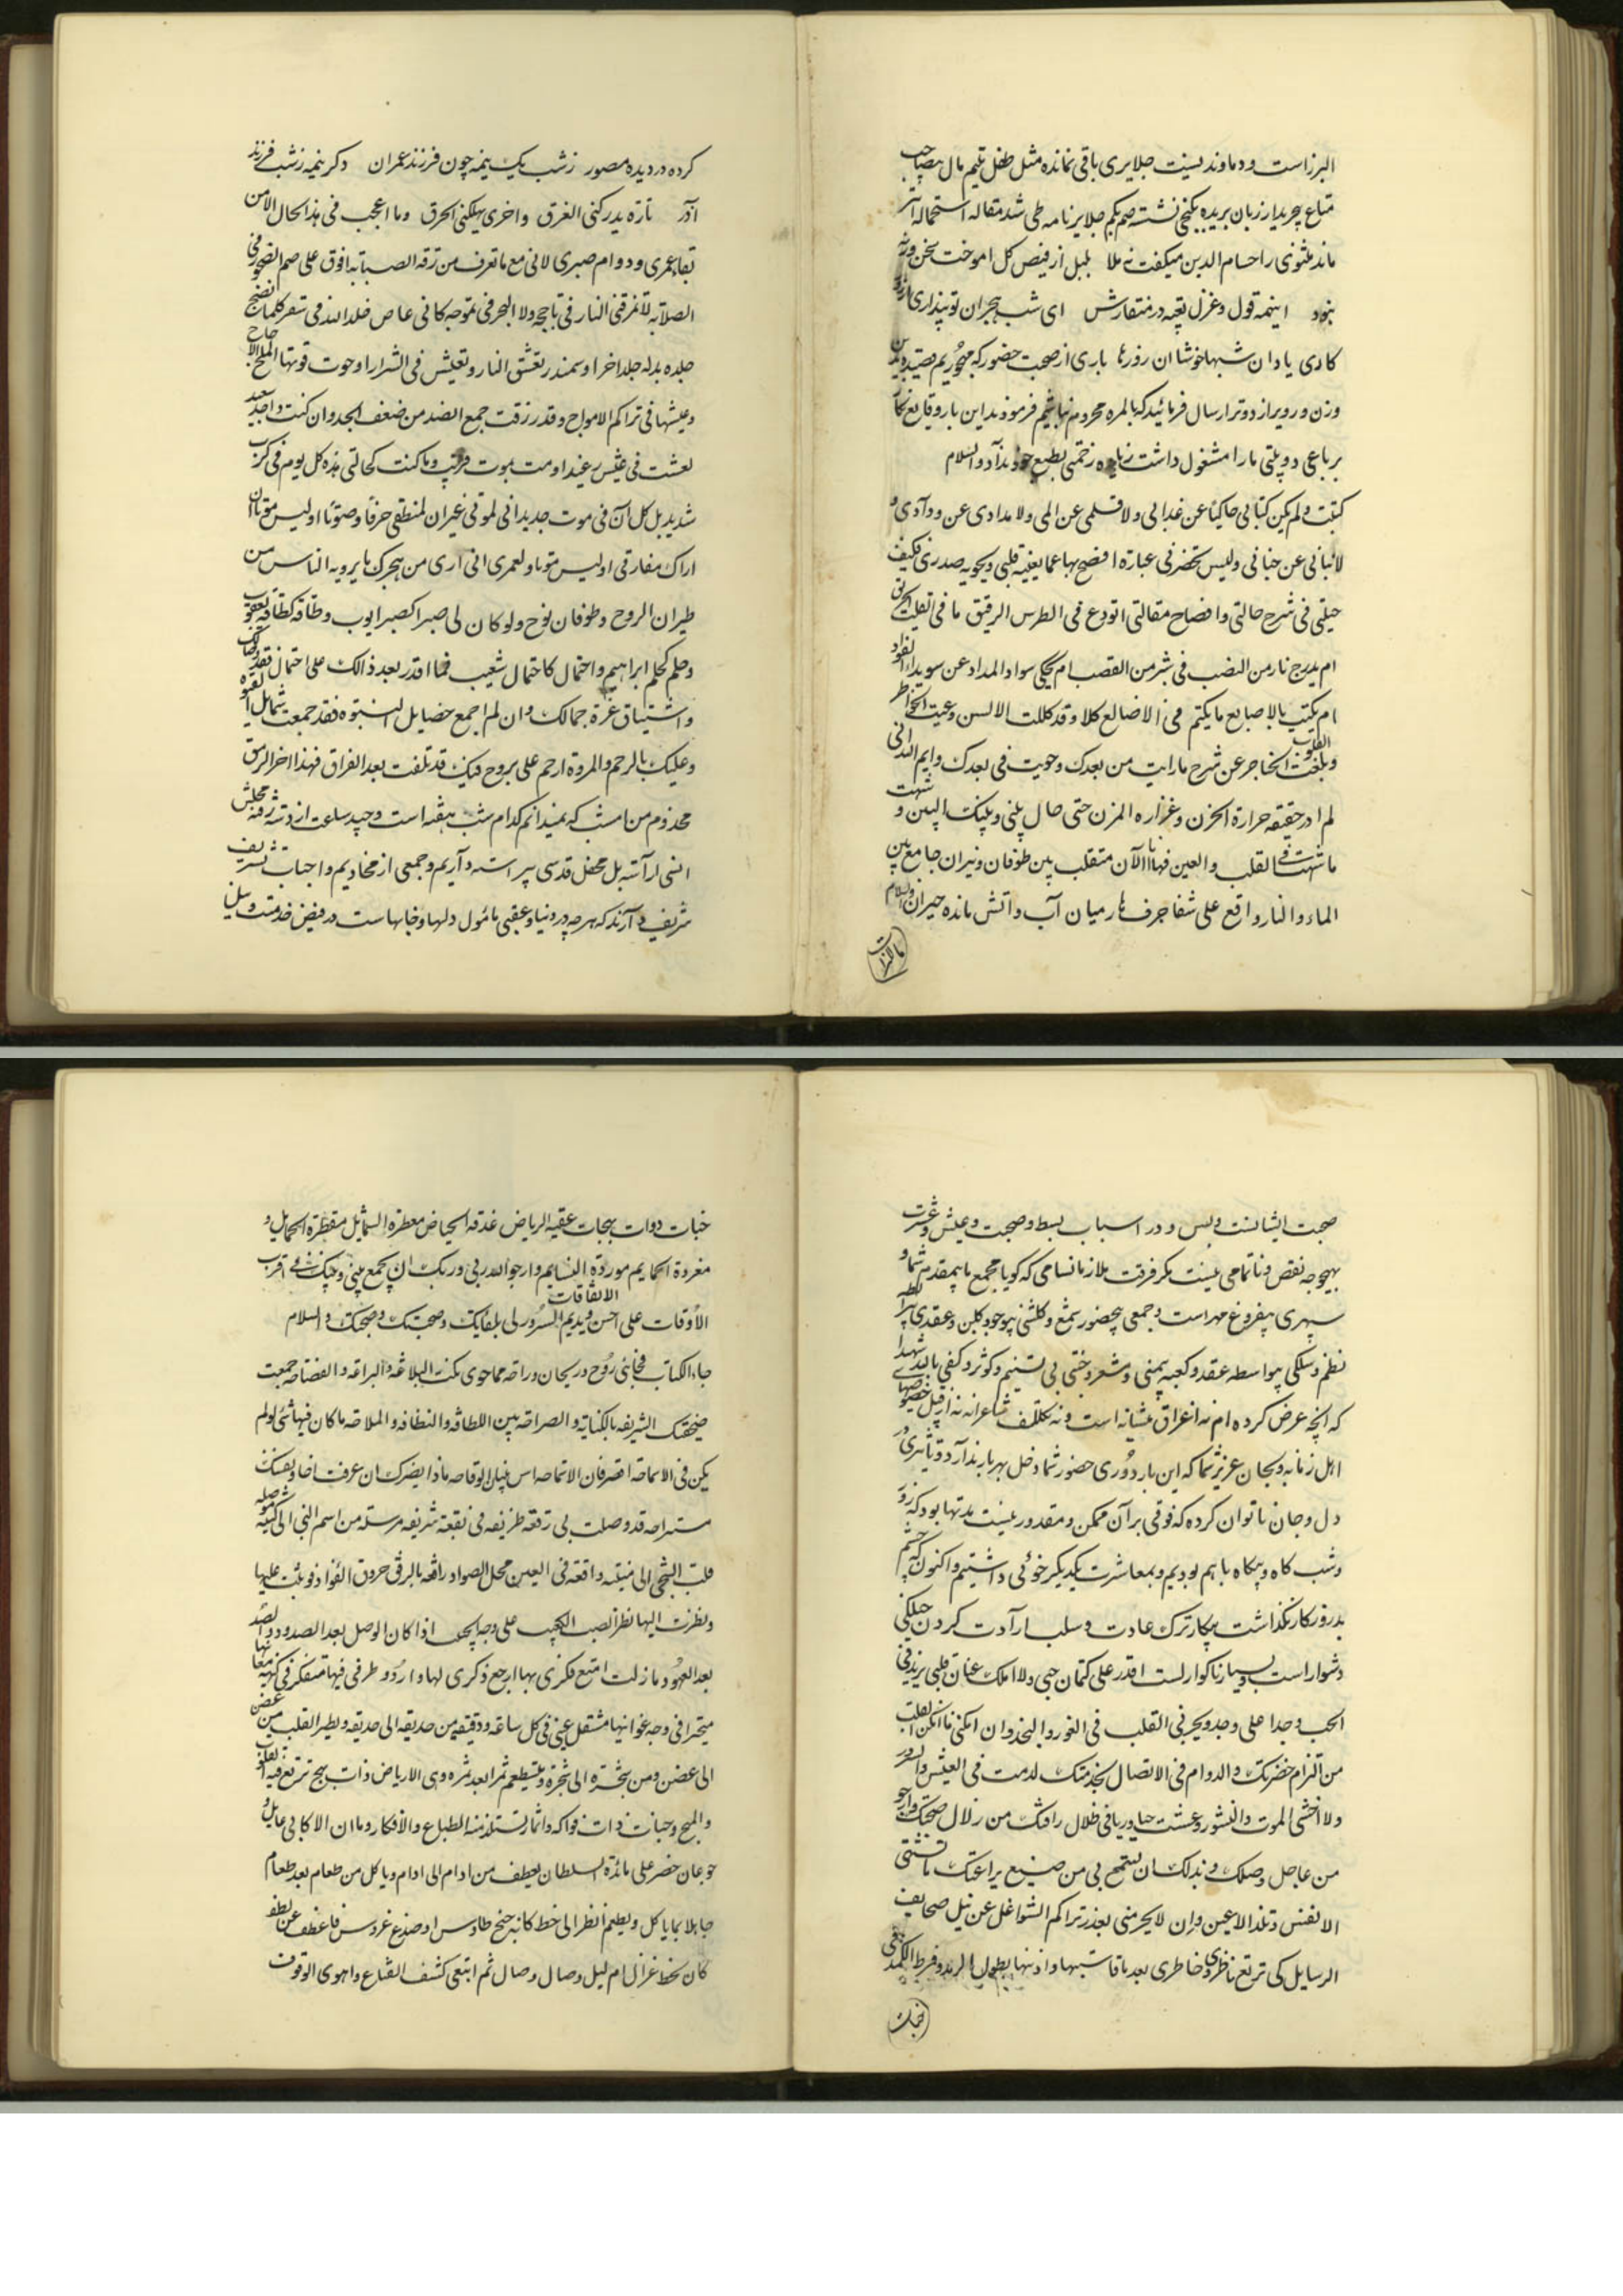 البرز است و دماوند نیست جلایری باقی نمانده مثل طفل یتیم مال بصاحب
متاع بخریدار زبان بریده بکنجی نشسته صم بکم جلایرنامه طی شد مقاله استحماله
ماند مثنوی را حسام الدین میکفت نه ملا بلبل از فیض کل اموخت سخن ورنه
نبود اینهمه قول و غزل تعبیه در منقارش ای شب هجران تو پنداری
کادی یاد ان شبها خوشا ان روزها باری از صحبت حضور که مهجوریم
وزن و رویراز دوتر ارسال فرمائید که بالمره محروم نباشیم فرموذید این بار وقایع نکار
برباعی دو بیتی ما را مشغول داشت زیاده زحمتی بطبع خود بدآد والسلام
کتبت ولم یکن کتابی حاکیا عن غدابی ولا قلمی عن المی ولا مدادی عن ودادی و
لا بنانی عن جنانی ولیس تحضرنی عبارة افصح بها عما یعنیه قلبی ویحویه صدری فکیف
حیلتی فی شرح حالتی وافصاح مقالتی اتودع فی الطرس الرقیق ما فی القلب الحریق
ام یدرج نار من الغضب فی شبر من القصب ام یحکی سواد المداد عن سویداء الفؤاد
ام یکتب بالاصابع ما یکتم فی الاضالع کلا وقد کللت الالسن وعیت الخواطر
وبلغت القلوب الحناجر عن شرح ما رایت من بعدک وحویت فی بعدک وایم الله انی
لم ادر حقیقه حرارة الحزن و غزاره المزن حتی حال بینی و بینک البین و شهت
ما شهت فی القلب والعین فها انا الآن متقلب بین طوفان و نیران جامع بین
الماء والنار واقع علی شفا جرف هار میان آب و آتش مانده حیران والسلام
کرده در دیده مصور زشب یک نیمه چون فرزند عمران دکر نیمه زشب فرزند
آذر تارة یدرکنی الغرق واخری یهلکنی الحرق وما اعجب فی هذا الحال الا من
بقاء عمری ودوام صبری لانی مع ما تعرف من رقه الصبابه افوق علی صم الصخور فی
الصلابه لا تمزقنی النار فی تاججه ولا البحر فی تموجه کانی عاص خلد الله فی سقر کلما نضج
جلده بدله جلدا اخر او سمندر تعشق النار وتعیش فی الشرار او حوت قوتها الملح الاجاج
وعیشها فی تراکم الامواج وقد رزقت جمع الضد من ضعف الجد وان کنت واجد سعید
لعشت فی عیش رغید او مت بموت قریب وما کنت کحالتی هذه کل یوم فی کرب
شدید بل کل آن فی موت جدید انی لموتی غیران لمنطقی حرفا وصوتا اولیس موتا ان
اراک مفارقی اولیس موتا ولعمری انی اری من هجرک ما یرویه الناس من
طیران الروح وطوفان نوح ولو کان لی صبرا کصبر ایوب وطاقه کطاقه یعقوب
وحلم کحلم ابراهیم واحتمال کاحتمال شعیب فما اقدر بعد ذالک علی احتمال فقد وصالک
واشتیاق غرة جمالک وان لم اجمع خصایل النبوه فقد جمعت شمایل الفتوة
وعلیک بالرحم والمروة ارحم علی بروح فیک قد تلفت بعد الفراق فهذا اخر الرمق
مخدوم من امشب که نمیدانم کدام شب هفته است و چند ساعت از وقت رفته مجلس
انسی اراسته بل محفل قدسی پیراسته دآریم و جمعی از مخادیم و احباب تشریف
شریف دآرند که هر چه در دنیا و عقبی مأمول دلها و جانهاست در فیض خدمت و نیل
صحبت ایشانست و بس و در اسباب بسط و صحبت و عیش و عشرت
بهیچوجه نقص و ناتمامی نیست مکر فرقت ملازمان سامی که کویا مجمع ما بیمقدم شما
سپهری بیفروغ مهر است و جمعی بیحضور شمع و کلشنی بیوجود کلبن و عقدی
نظم و سلکی بیواسطه عقد و کعبه بیمنی و مشعر و جنتی بی تسنیم و کوثر و کفی بالله شهیدا
که انچه عرض کرده ام نه اغراق منشیانه است و نه تکلف شاعرانه نه از قبیل خصوصیتهای
اهل زمانه و بجان عزیز شما که این بار دوری حضور شما دخل بهر بار ندآرد و تأثیری در
دل و جان ناتوان کرده که فوقی بر آن ممکن و مقدور نیست مدتها بود که روز
و شب کاه و بیکاه با هم بودیم و بمعاشرت یکدیکر خوئی داشتیم و اکنون که چشم
بد روزکار نکذاشت بیکبار ترک عادت و سلب ارآدت کردن خیلی
دشوار است و بسیار ناکوار لست اقدر علی کتمان حبی ولا املک عنان قلبی یزیدنی
الحب وجدا علی وجد ویجرنی القلب فی الغور والنجد وان امکننی
من التزام حضرتک والدوام فی الاتصال بخدمتک لدمت فی العیش والسرور
ولا اخشی الموت والنشور وعشت حیا وریا فی ظلال رافتک من زلال صحبتک وارجو
من عاجل وصلک وبذلک ان تسمح بی من صنیع یراعتک ما تشتهی
الانفس وتلذ الاعین وان لا یحرمنی بعذر تراکم الشواغل عن نیل صحایف
الرسایل کی ترتع ناظری وخاطری بعد ما قاست بها واذنها بطول الرمد وفرط الکمد فی
جنات دوات بهجات عقیه الریاض غدقه الحیاض معطرة الشمایل مقطرة الخمایل و
مغردة الحمایم موردة النسایم وارجو الله ربی وربک ان یجمع بینی وبینک فی اقرب
الاوقات علی احسن الاتفاقات ویدیم السرور لی بلقایک وصحبتک وصحتک والسلام
جاء الکتاب فجائنی روح و ریحان وراحه مما حوی نکت البلاغه والبراعه والفصاحه جمعت
صحیفتک الشریفه بالکنایة والصراحه بین اللطافه والنظافه والملاحه ما کان فیها شئ لو لم
یکن فی الاساحه
مستراحه قد وصلت بی رقعه ظریفه فی بقعة شریفه مرسله من اسم النبی الی کنیته موصله
قلب الشجی الی منیته واقعه فی العین محل السواد رافعه بالبرق حروق الفؤاد فوثبت علیها
ونظرت الیها نظر الصب الکئیب علی وجه الحبیب اذا کان الوصل بعد الصدود والصد
بعد العهود وما زلت امتع فکری بها ارجع ذکری لها واردد طرفی فیها متفکر فی کنه معانیها
متحیرا فی وجه غوانیها منتقل عینی فی کل ساعه ودقیقه من حدیقه الی حدیقه ویطیر القلب من غصن
الی غصن ومن شجرة الی شجرة ویستطعم ثمرا بعد ثمره وی الا ریاض ذات بهج ترتع فیه القلوب
والمهج وجنات ذات فواکه واثمار تستلذ منه الطباع والافکار وما ان الا کابی عایل و
جوعان حضر علی مائدة السلطان یعطف من ادام الی ادام ویاکل من طعام بعد طعام
جاهلا بما یاکل ویطعم انظر الی خط کانه جنح طاوس او صدغ عروس فاعطف عن لطف
کان بخط غزال ام لیل وصال وصال ثم ابتغی کشف القناع واهوی الوقوف